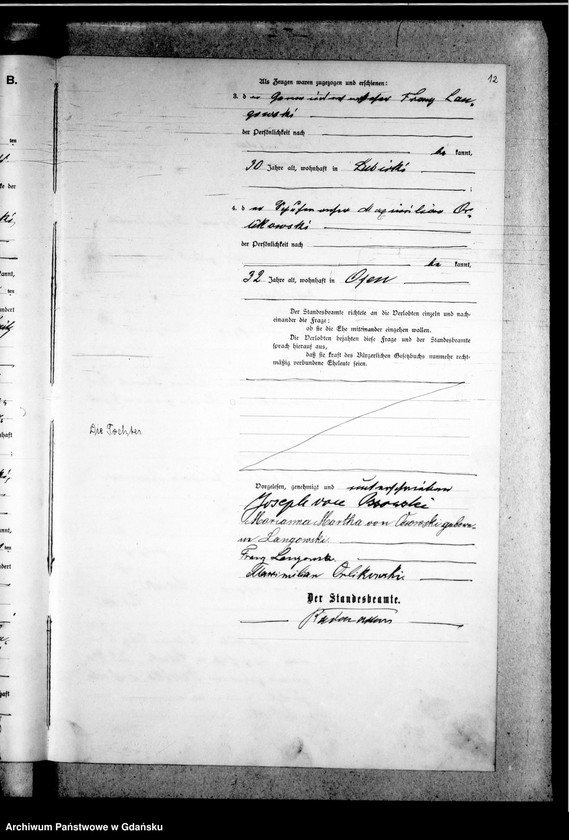 B.
12
Als Zeugen waren zugezogen und erschienen:
3. der Franz Lan-
gowski
der Persönlichkeit nach
be kannt,
30 Jahre alt, wohnhaft in
;
4. der Maximilian Or-
likowski
der Persönlichkeit nach
be kannt,
32 Jahre alt, wohnhaft in Osen
Der Standesbeamte richtete an die Verlobten einzeln und nach-
einander die Frage:
ob sie die Ehe miteinander eingehen wollen.
Die Verlobten bejahten diese Frage und der Standesbeamte
sprach hierauf aus,
daß sie kraft des Bürgerlichen Gesetzbuchs nunmehr recht-
mäßig verbundene Eheleute seien.
Die Tochter
Vorgelesen, genehmigt und unterschrieben
Joseph von
Marianna Martha von Ossowski gebore-
ne Langowski
Franz Langowski
Maximilian Orlikowski
Der Standesbeamte.
Archiwum Państwowe w Gdańsku